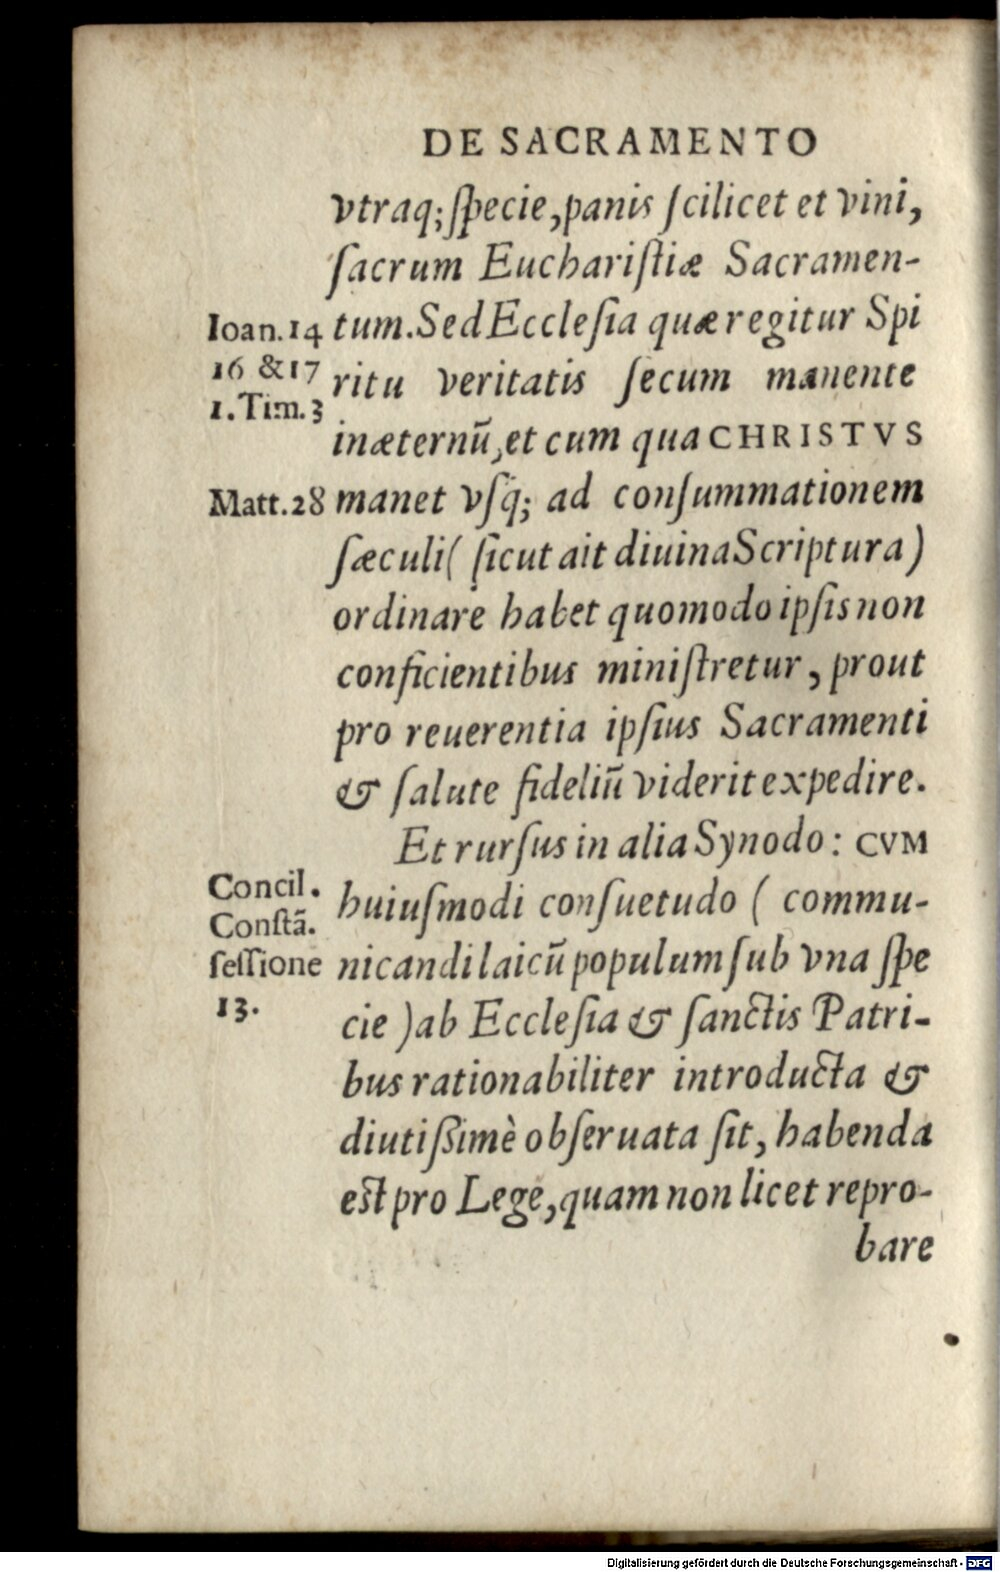 DE SACRAMENTO
vtraq;ſpecie,panis ſcilicet et vini,
ſacrum Euchariſtiæ Sacramen-
Ioan.14 tum.Sed Eccleſia quæ regitur Spi
16 &17
ritu veritatis ſecum manente
1.Tim.3
inæternū,et cum qua CHRISTVS
Matt.28 manet vſq̃; ad conſummationem
ſæculi( ſicut ait diuina Scriptura )
ordinare habet quomodo ipſis non
conficientibus miniſtretur, prout
pro reuerentia ipſius Sacramenti
& ſalute fideliū viderit expedire.
Et rurſus in alia Synodo: CVM
Concil.
huiuſmodi conſuetudo ( commu-
Conſtã.
ſeſſione nicandi laicū populum ſub vna ſpe
13.
cie )ab Eccleſia & ſanctis Patri-
bus rationabiliter introducta &
diutiſsimè obſeruata ſit, habenda
eſt pro Lege,quam non licet repro-
bare
Digitalisierung gefördert durch die Deutsche Forschungsgemeinschaft - DFG